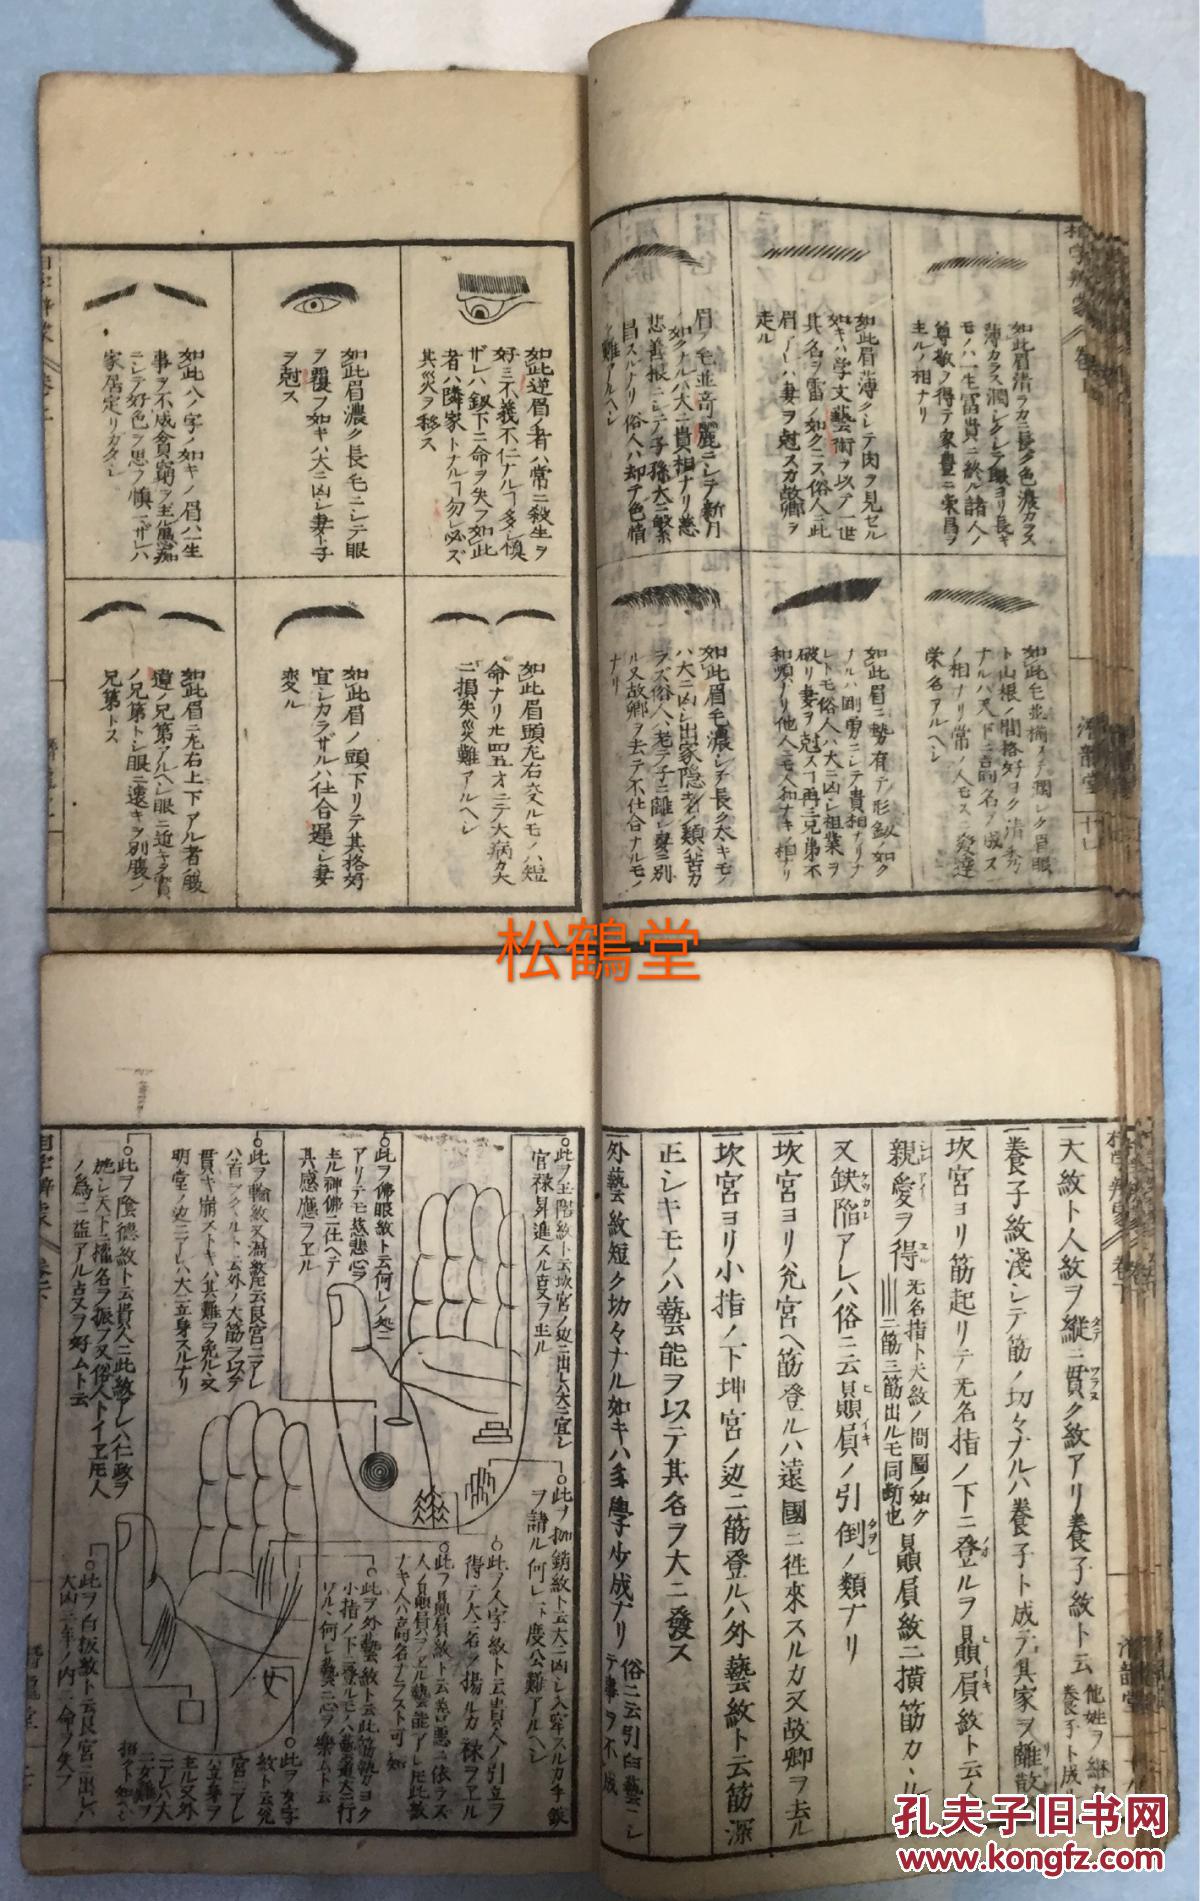 如此眉清ラカニ長ク色濃カラス
薄カラス潤シクシテ眼ヨリ長キ
モノハ一生富貴ニ終ル諸人ノ
尊敬ヲ得テ家豊ニ栄昌ヲ
主ルノ相ナリ
如此眉薄クシテ肉ヲ見セル
如キハ学文藝術ヲ以テ一世
其名ヲ雷ノ如クニス俗人ニ此
眉アレハ妻ヲ尅スカ故郷ヲ
走ル
眉ノ毛並奇麗ニシテ新月
如クナルハ大ニ貴相ナリ慈
悲善根ニシテ子孫大ニ繁
昌スルナリ俗人ハ却テ色情
ノ難アルヘシ
如此毛並揃フテ潤シク眉眼
ト山根ノ間格好ヨク清秀
ナルハ天下ニ高名ヲ成ス
ノ相ナリ常ノ人モスヘテ発達
栄名アルヘシ
如此眉ニ勢有テ形釼ノ如ク
ナルハ剛勇ニシテ貴相ナリナ
レトモ俗人ハ大ニ凶シ祖業ヲ
破リ妻ヲ尅スヿ再三兄弟不
和順ナリ他人ニモ人和ナキノ相ナリ
如此眉毛濃シテ長ク太キモノ
ハ大ニ凶シ出家隠者ノ類ハ苦カ
ラズ俗人ハ老テ子ニ離レ妻ニ別
ル又故郷ヲ去テ不仕合ナルモノ
ナリ
潛龍堂
十四
如此逆眉ノ者ハ常ニ殺生ヲ
好ミ不義不仁ナルヿ多シ慎
ザレハ釼下ニ命ヲ失フ如此
者ハ隣家トナルヿ勿レ必ズ
其災ヲ移ス
如此眉濃ク長毛ニシテ眼
ヲ覆フ如キハ大ニ凶シ妻ト子
ヲ尅ス
如此八ノ字ノ如キノ眉ハ一生
事ヲ不成貧窮ヲ主ル愚痴
ニシテ好色ヲ思フ慎ニザレハ
家居定リガタシ
如此眉頭左右交ルモノハ短
命ナリ廿四五才ニテ大病カ大
ニ損失災難アルヘシ
如此眉ノ頭下リテ其格好
宜シカラザルハ仕合遅シ妻
変ル
如此眉ニ左右上下アル者ハ腹
違ノ兄弟アルヘシ眼ニ近キヲ實
ノ兄第トシ眼ニ遠キヲ別腹ノ
兄第トス
松鶴堂
一天紋ト人紋ヲ縦ニ貫ク紋アリ養子紋ト云
一養子紋淺シテ筋ノ切々ナルハ養子ト成テ其家ヲ離散ス
一坎宮ヨリ筋起リテ无名指ノ下ニ登ルヲ贔屓紋ト云人ノ
親愛ヲ得 无名指ト天紋ノ間圖ノ如ク二筋三筋出ルモ同断也 贔屓紋二横筋カヽリ
又缺陥アレハ俗ニ云贔屓ノ引倒ノ類ナリ
一坎宮ヨリ兊宮ヘ筋登ルハ遠國ニ徃來スルカ又故郷ヲ去ル
一坎宮ヨリ小指ノ下坤宮ノ辺ニ筋登ルハ外藝紋ト云筋深
正シキモノハ藝能ヲ以テ其名ヲ大ニ發ス
一外藝紋短ク切々ナル如キハ多學少成ナリ
此ヲ玉階紋ト云坎宮ノ辺ニ出レハ大ニ宜シ
官禄昇進スル叓ヲ主ル
此ヲ佛眼紋ト云何レノ処ニ
アリテモ慈悲心ヲ
主ル神佛ニ仕ヘテ
其感應ヲヱル
此ヲ輪紋又渦紋ト云艮宮ニアレ
ハ首ヲクヽルト云外ノ大筋ヲ以テ
貫キ崩ストキハ其難ヲ免ル又
明堂ノ辺ニアレハ大ニ立身スルナリ
此ヲ陰德紋ト云貴人ニ此紋アレハ仁政ヲ
施シ天下ニ權名ヲ振フ又俗人トイヱ𪜈人
ノ為ニ益アル叓又ヲ好ムト云
此ヲ枷鎖紋ト云大ニ凶シ入牢スルカ手鎖
ヲ請ル何レ一ト度公難アルヘシ
此ヲ人字紋ト云貴人ノ引立ヲ
得テ大ニ名ヲ揚ルカ禄ヲヱル
此ヲ贔屓紋ト云善悪ニ依ラス
人ノ贔屓ヲヱル藝能アレ𪜈此紋
ナキ人ハ高名ナラスト可知
此ヲ外藝紋ト云此筋執カヨク
小指ノ下ニ登ルモノハ藝道大ニ行
ワル何レ藝ニ心ヲ樂ムト云
此ヲ女字
紋ト云兊
宮ニアレ
ハ立身ヲ
主ル又外
ニアレハ大
ニ女難ヲ
招クト知ヘシ
此ヲ白板紋ト云艮宮ニ出レハ
大凶三年ノ内ニ命ヲ失フ
孔夫子旧书网
www.kongfz.com